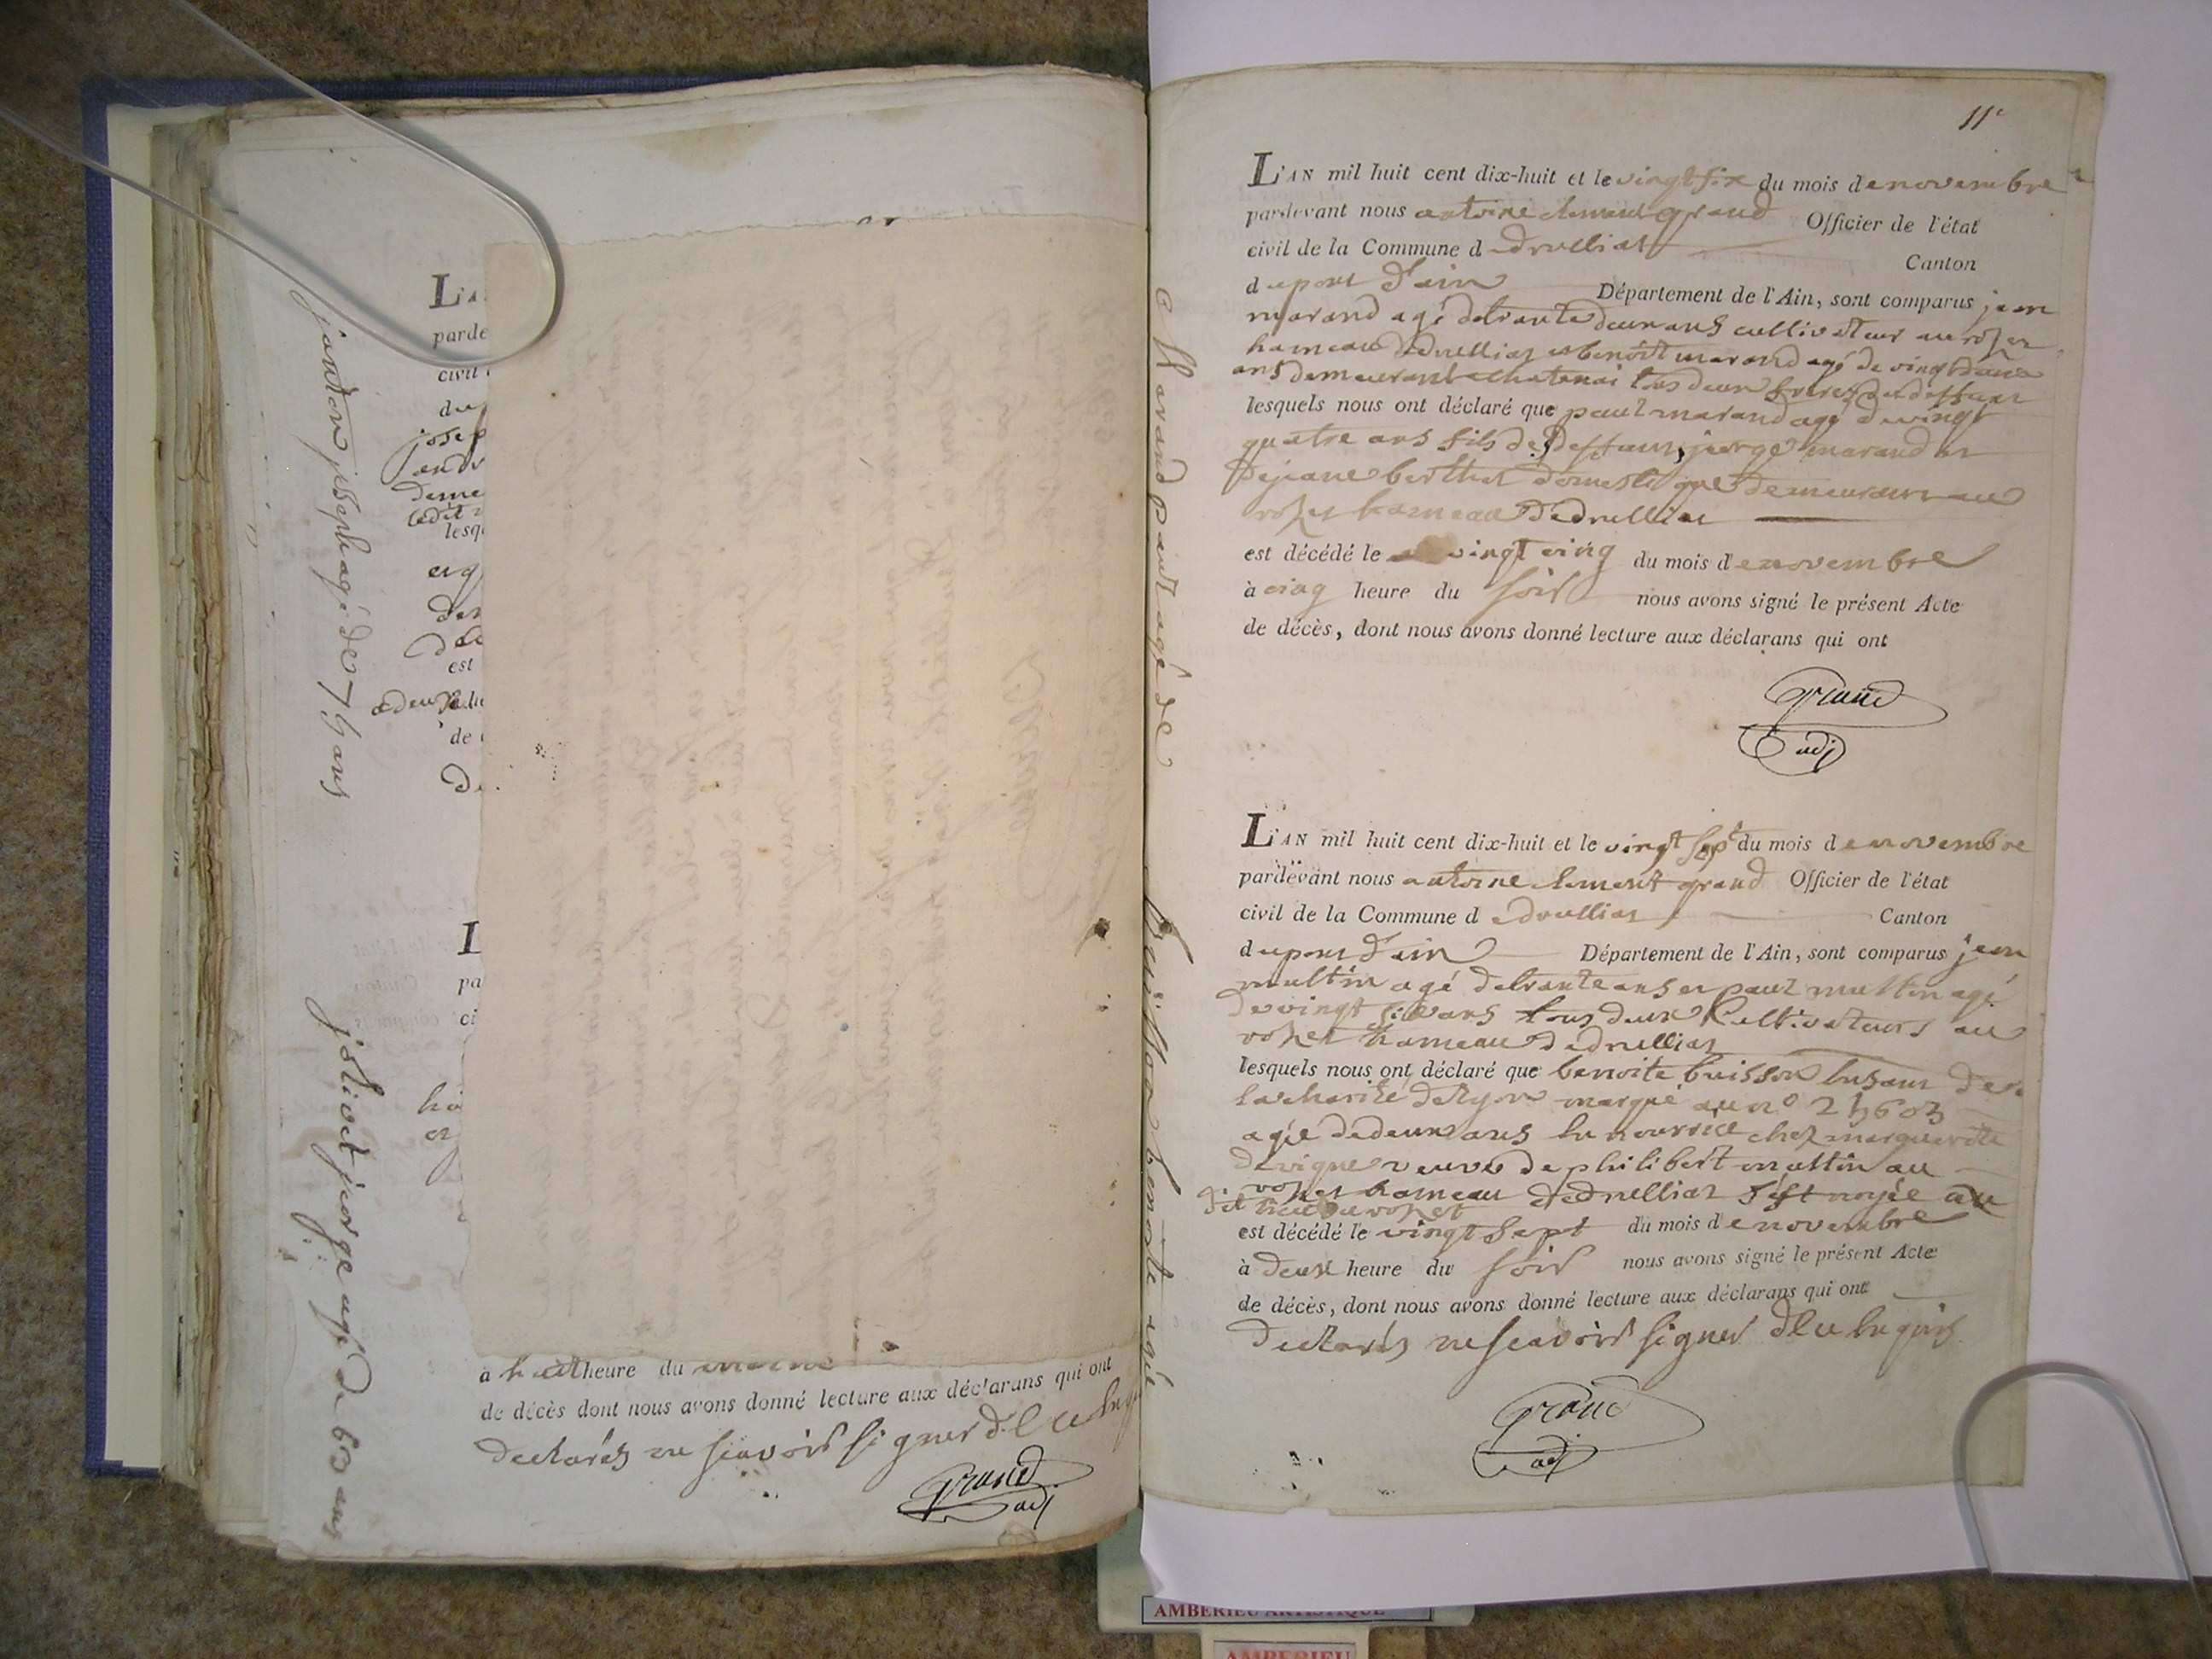 jandon joseph agé de 75 ans
jolivet jeorge agé de 63 ans
parde
civil
du
josep
andr
deme
ledit
lesq
est
de
L
pa
ci
à huit heure du matin
de décès dont nous avons donné lecture aux déclarans qui ont
declarés ne scavoir signer d l ce
grand
adj
Marand paul agé de
Buisson benoite agée
11e
L'AN mil huit cent dix-huit et le vingt six du mois de novembre
pardevant nous antoine clement grand Officier de l'état
civil de la Commune d edruilliat Canton
dupont d'ain Département de l'Ain, sont comparus jean
marand agé de trante deux ans cultivateur au rozet
hameau dedruilliat et benoît marand agé de vingt deux
ans demeurant a chatenai tous deux freres du deffunt
lesquels nous ont déclaré que paul marand agé de vingt
quatre ans fils de deffunt jeorge marand et
de jeane berthet domestique demeurant au
rozet hameau dedruilliat
est décédé le vingt cinq du mois d enovembre
à cinq heure du soir nous avons signé le présent Acte
de décès, dont nous avons donné lecture aux déclarans qui ont
grand
adj
L'AN mil huit cent dix-huit et le vingt sept du mois d enovembre
pardevant nous antoine clement grand Officier de l'état
civil de la Commune d edruilliat Canton
dupont d'ain Département de l'Ain, sont comparus jean
multin agé de trante ans et paul multin agé
de vingt six ans tous deux Cultivateurs au
rozet hameau dedruilliat
lesquels nous ont déclaré que benoite buisson enfant de
la charité de Lyon marqué au n° 25603
agée de deux ans en nourrice chez marguerite
devigne veuve de philibert multin au
rozet hameau dedruilliat s'est noyée au
dit lieu du rozet
est décédé le vingt sept du mois d enovembre
à deux heure du soir nous avons signé le présent Acte
de décès, dont nous avons donné lecture aux déclarans qui ont
declarés ne scavoir signer d l ce enquis
grand
adj
AMBERIEU ARTISTIQUE
AMBERIEU